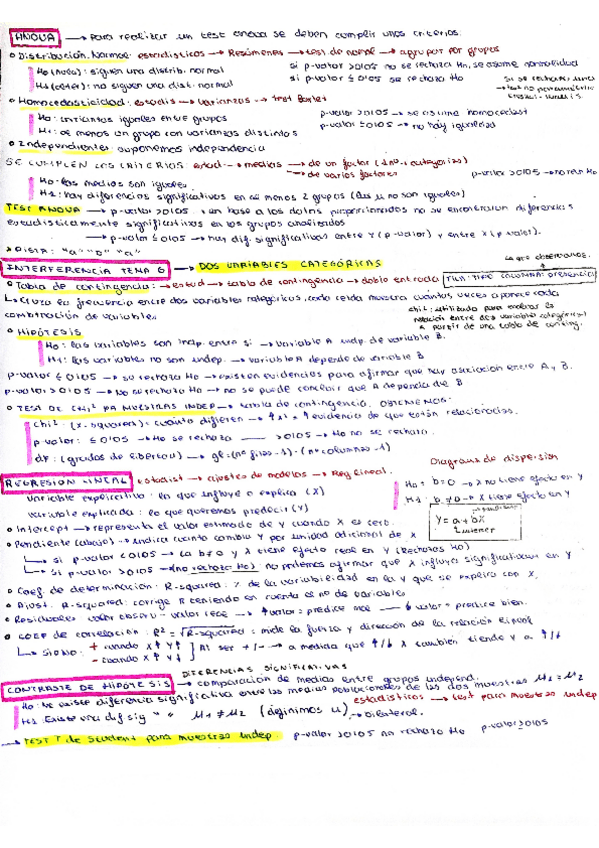 ANOVA → para realizar un test anova se deben cumplir unos criterios.
o Distribución Normal: estadísticos → Resúmenes → test de normal → agrupar por grupos
Ho (nula): siguen una distrib. normal si p-valor >0'05 no se rechaza Ho, se asume normalidad
H1 (alter): no siguen una dist. normal si p-valor ≤ 0'05 se rechaza Ho
si se rechaza
→ test no paramétrico
o Homocedasticidad: estadis → varianzas → test Barlet
Ho: varianzas iguales entre grupos p-valor >0'05 → se asume homocedast
H1: al menos un grupo con varianzas distintas p-valor ≤ 0'05 → no hay igualdad
o Independientes: suponemos independencia
SE CUMPLEN LOS CRITERIOS: estad → medias → de un factor
→ de varios factores p-valor >0'05 → no rech Ho
Ho: las medias son iguales
H1: hay diferencias significativas en al menos 2 grupos (las μ no son iguales)
TEST ANOVA → p-valor >0'05, en base a los datos proporcionados no se encontraron diferencias
estadísticamente significativas en los grupos analizados
→ p-valor ≤ 0'05 → hay dif. significativas entre Y (p-valor) y entre X (p valor).
"a" "b" "a"
INTERFERENCIA TEMA 6 → DOS VARIABLES CATEGÓRICAS
→ que observamos.
o Tabla de contingencia: → estad → tabla de contingencia → doble entrada
↳ Cruza la frecuencia entre dos variables categóricas, cada celda muestra cuántas veces aparece cada
combinación de variables
chi²: utilizado para analizar la
relación entre dos variables categóricas
a partir de una tabla de conting.
o HIPÓTESIS
Ho: las variables son indp. entre sí → variable A indp. de variable B.
H1: las variables no son indep. → variable A depende de variable B
p-valor ≤ 0'05 → se rechaza Ho → existen evidencias para afirmar que hay asociación entre A y B.
p-valor > 0'05 → No se rechaza Ho → no se puede concluir que A dependa de B
o TEST DE CHI² PA MUESTRAS INDEP → tabla de contingencia. OBTENEMOS:
chi²: (X-squared) = cuanto difieren → ↑x² = ↑ evidencia de que están relacionadas.
p-valor: ≤ 0'05 → Ho se rechaza → >0'05 → Ho no se rechaza.
df: (grados de libertad) → gl = (nº filas - 1) · (nº columnas - 1)
REGRESIÓN LINEAL estadist → ajustes de modelos → Reg lineal. Diagrama de dispersión
Variable explicativa: la que influye o explica (X) Ho: b = 0 → x no tiene efecto en y
variable explicada: lo que queremos predecir (Y) H1: b ≠ 0 → X tiene efecto en Y
o Intercept → representa el valor estimado de y cuando x es cero. Y = a + bX
o Pendiente (abajo) → indica cuanto cambia Y por unidad adicional de x
↳ si p-valor < 0'05 → la b ≠ 0 y x tiene efecto real en y (Rechazas Ho)
↳ si p-valor > 0'05 → (no rechazo Ho) no podemos afirmar que X influya significativam en y
o Coef. de determinación: R-squared: % de la variabilidad en la y que se explica con X.
o Ajust. R-squared: corrige R teniendo en cuenta el nº de variables
o Residuales valor observ - valor rece → ↑ valor = predice mal → ↓ valor = predice bien.
o COEF de correlación: R² = √R-squared: mide la fuerza y dirección de la relación lineal
↳ SIGNO: + cuando x↑ y↑
- cuando x↑ y↓ } Al ser +/- → a medida que ↑/↓ X también tiende y a ↑/↓
DIFERENCIAS SIGNIFICATIVAS
CONTRASTE DE HIPÓTESIS → comparación de medias entre grupos independ.
Ho: No existe diferencia significativa entre las medias poblacionales de las dos muestras M1 = M2
estadísticos → test para muestras indep
H1: Existe una dif sig " " M1 ≠ M2 (definimos μ) → bilateral.
→ TEST T de Student para muestras indep. p-valor >0'05 no rechazo Ho p-valor ≥0'05